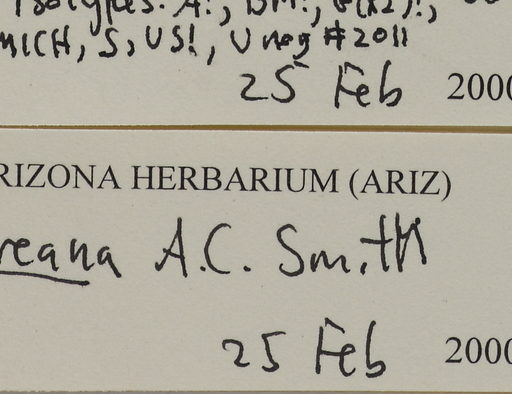 Isotypes: A!, BM!,
MICH, S, US!, U neg #2011
25 Feb 2000
RIZONA HERBARIUM (ARIZ)
reana A.C. Smith
25 Feb 2000